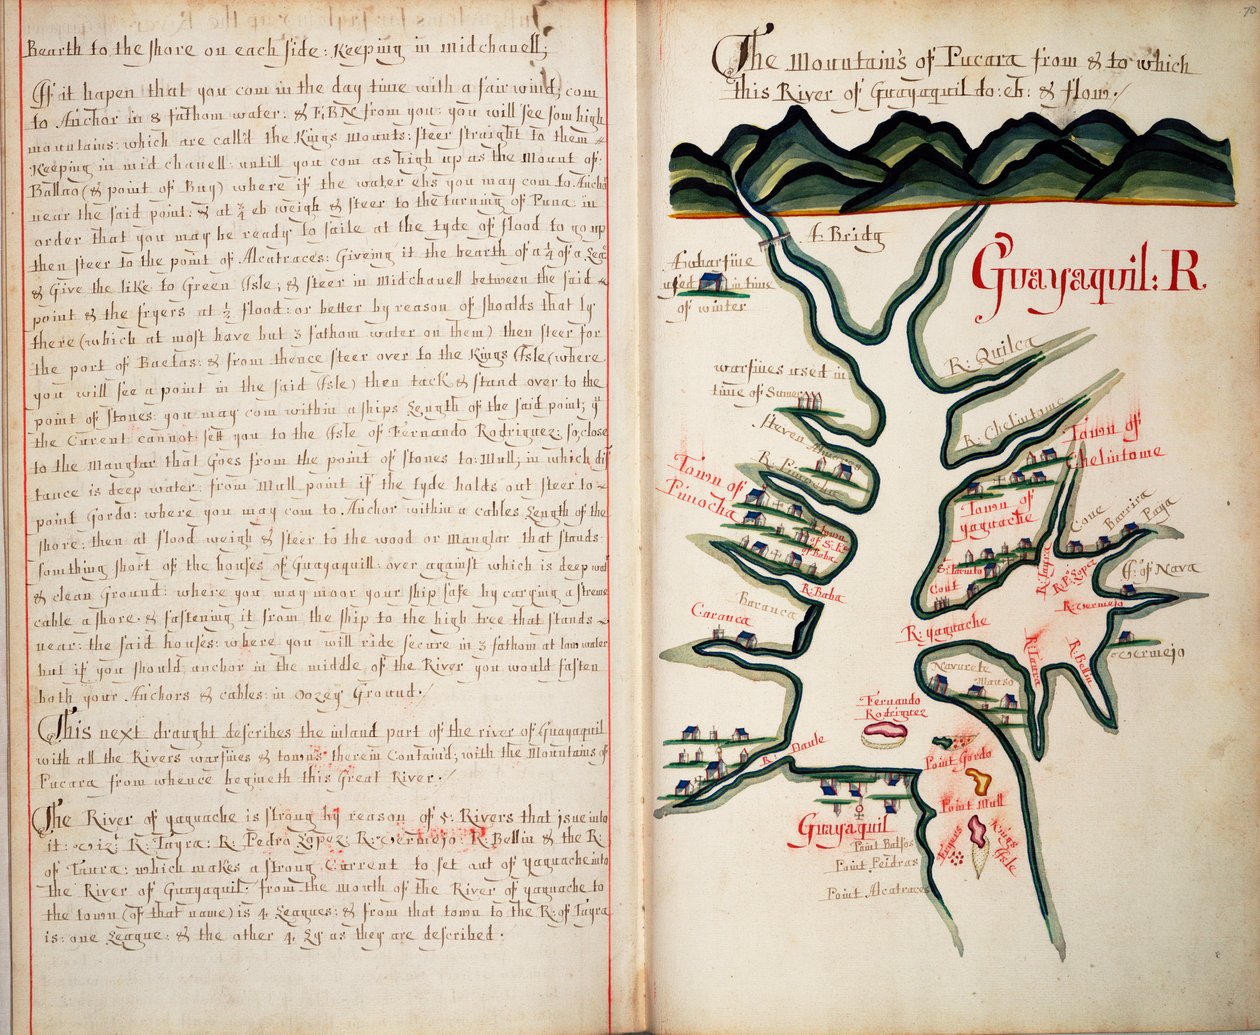 Bearth to the shore on each side: Keeping in midchanell;
If it hapen that you com in the day time with a fair wind, com
to Anchor in 8 fathom water: & EBN from you: you will see som high
mountains: which are call'd the Kings Mounts: steer straight to them
Keeping in mid chanell: untill you com as high up as the Mount of
Ballao (& point of Buy) where if the water ebs you may com to Ancho
near the said point: & at ¾ eb weigh & steer to the turning of Puna: in
order that you may be ready to saile at the tyde of flood to go up
then steer to the point of Alcatraces: Giveing it the bearth of a ¼ of a Leag
& Give the like to Green Isle; & steer in Midchanell between the said
point & the fryers at ½ flood: or better by reason of shoalds that ly
there (which at most have but 3 fathom water on them) then steer for
the port of Baetas: & from thence steer over to the Kings Isle (where
you will see a point in the said Isle) then tack & stand over to the
point of Stones: you may com within a ships Length of the said point; yt
the Curent cannot sett you to the Isle of Fernando Rodriguez: so, close
to the Manglar that Goes from the point of stones to: Mull; in which dis
tance is deep water: from Mall point if the tyde holds out steer to
point Gordo: where you may com to Anchor within a cables Length of the
shore: then at flood weigh & steer to the wood or Manglar that stands
somthing short of the houses of Guayaquill: over against which is deep wat
& clean Ground: where you may moor your ship safe by carying a strem
cable a shore: & fastening it from the ship to the high tree that stands
near: the said houses: where you will ride secure in 3 fathom at low water
but if you should anchor in the middle of the River you would fasten
both your Anchors & cables: in oozey Ground.
This next draught describes the inland part of the river of Guayaquil
with all the Rivers warfines & towns therein Contain'd; with the Mountains of
Pucara from whence begineth this Great River./
The River of yaguache is strong by reason of 5: Rivers that issue into
it: Viz: R: Tayra: R: Pedro Lopez: R: Vermejo: R: Bellin & the R:
of Taura: which makes a strong Current to set out of yaguache into
the River of Guayaquil: from the mouth of the River of yaguache to
the town (of that name) is 4 Leagues: & from that town to the R: of Tayra
is: one League: & the other 4 Lg as they are described.
70
The Mountain's of Pucara from & to which
this River of Guayaquil do: eb: & flow./
A Bridg
Guayaquil: R.
A wharfine
used in time
of winter
R: Quilca
warfines used in
time of Sumer
R: Chelintome
Town of
Chelintome
Town of
Pinocha
Town of
yaguache
Town
of
of Baba
Coue
Barrira
Paya
R: Tayra
R: Po: Lopez
of Nava
R: Baba
Baranca
Caranca
R: Vermejo
R: yaguache
Vermejo
R: Taura
R: Bellin
Navurete
Fernando
Rodriguez
R: Daule
Point Gordo
Point Mull
Guayaquil
Fryers
Kings
Isle
Point Balsos
Point Peidras
Point Alcatraces